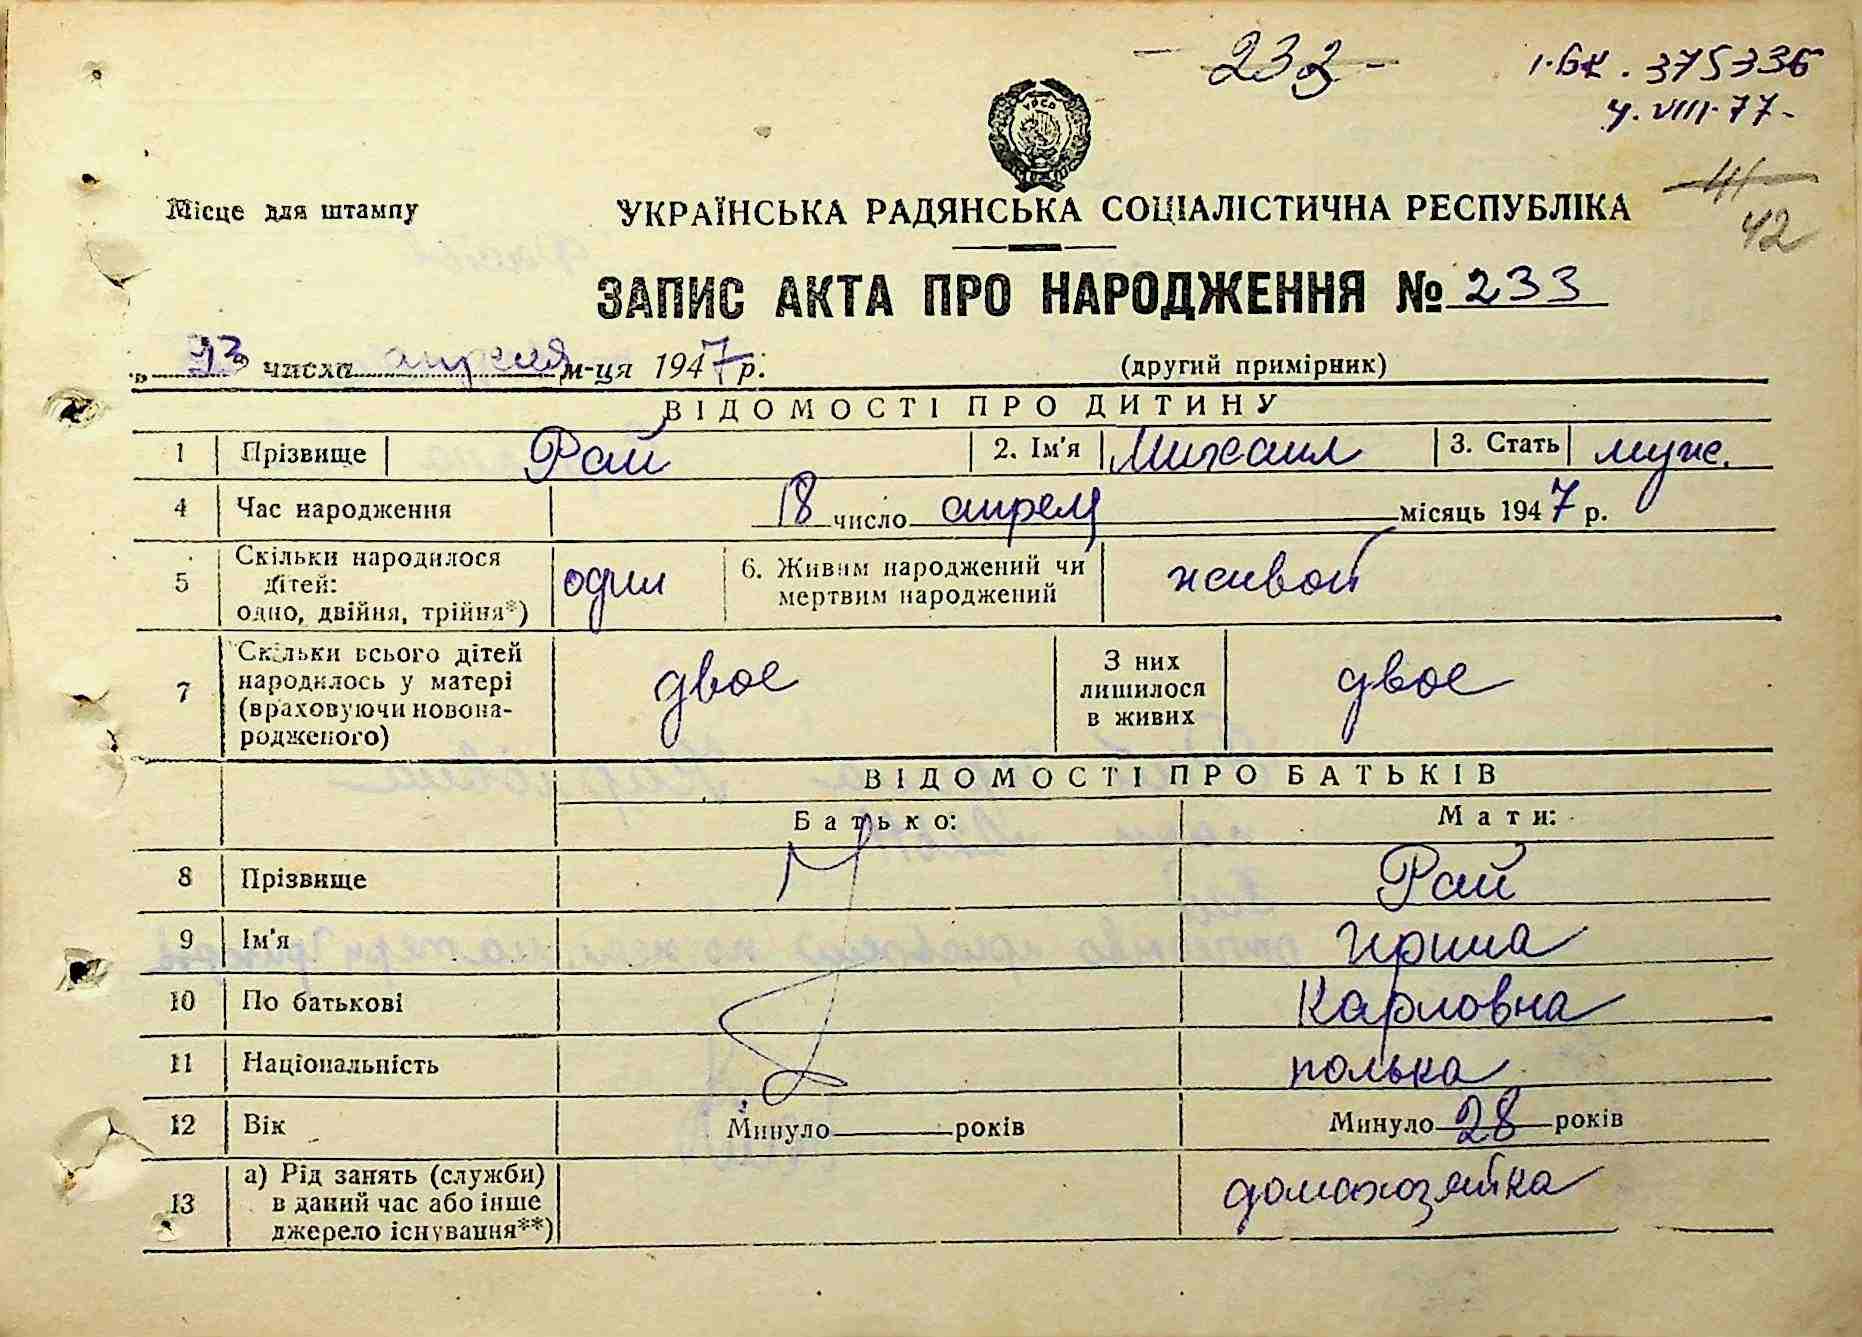 - 232 -
І-БК. 375336
4. VIII-77-
41
42
УРСР
Місце для штампу
УКРАЇНСЬКА РАДЯНСЬКА СОЦІАЛІСТИЧНА РЕСПУБЛІКА
ЗАПИС АКТА ПРО НАРОДЖЕННЯ № 233
„ 23 " числа апреля м-ця 1947 р.
(другий примірник)
ВІДОМОСТІ ПРО ДИТИНУ
1 Прізвище Рай 2. Ім'я Михаил 3. Стать муж.
4 Час народження 18 число апреля місяць 1947 р.
5 Скільки народилося дітей: одно, двійня, трійня*) один 6. Живим народжений чи мертвим народжений живой
7 Скільки всього дітей народилось у матері (враховуючи новонародженого) двое З них лишилося в живих двое
ВІДОМОСТІ ПРО БАТЬКІВ
Батько: Мати:
8 Прізвище Рай
9 Ім'я Ирина
10 По батькові Карловна
11 Національність полька
12 Вік Минуло років Минуло 28 років
13 а) Рід занять (служби) в даний час або інше джерело існування**) домохозяйка